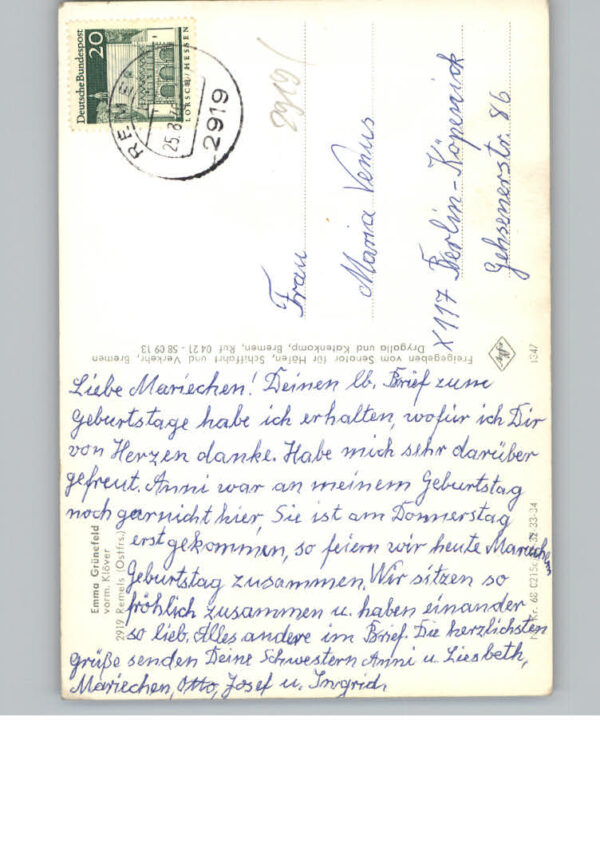 Deutsche Bundespost
20
LORSCH/HESSEN
2919
25.8
2919
Frau
Maria Venus
X117 Berlin-Köpenick
Gehsenerstr. 86
Freigegeben vom Senator für Häfen, Schiffahrt und Verkehr, Bremen
Drygalla und Katenkamp, Bremen, Ruf 04 21 - 58 09 13
Liebe Mariechen! Deinen lb. Brief zum
Geburtstage habe ich erhalten, wofür ich Dir
von Herzen danke. Habe mich sehr darüber
gefreut. Anni war an meinem Geburtstag
noch garnicht hier, Sie ist am Donnerstag
erst gekommen, so feiern wir heute Mariechen
Geburtstag zusammen. Wir sitzen so
fröhlich zusammen u. haben einander
so lieb. Alles andere im Brief. Die herzlichsten
grüße senden Deine Schwestern Anni u. Liesbeth,
Mariechen, Otto, Josef u. Ingrid.
Emma Grünefeld
vorm. Klöver
2919 Remels (Ostfrs.)